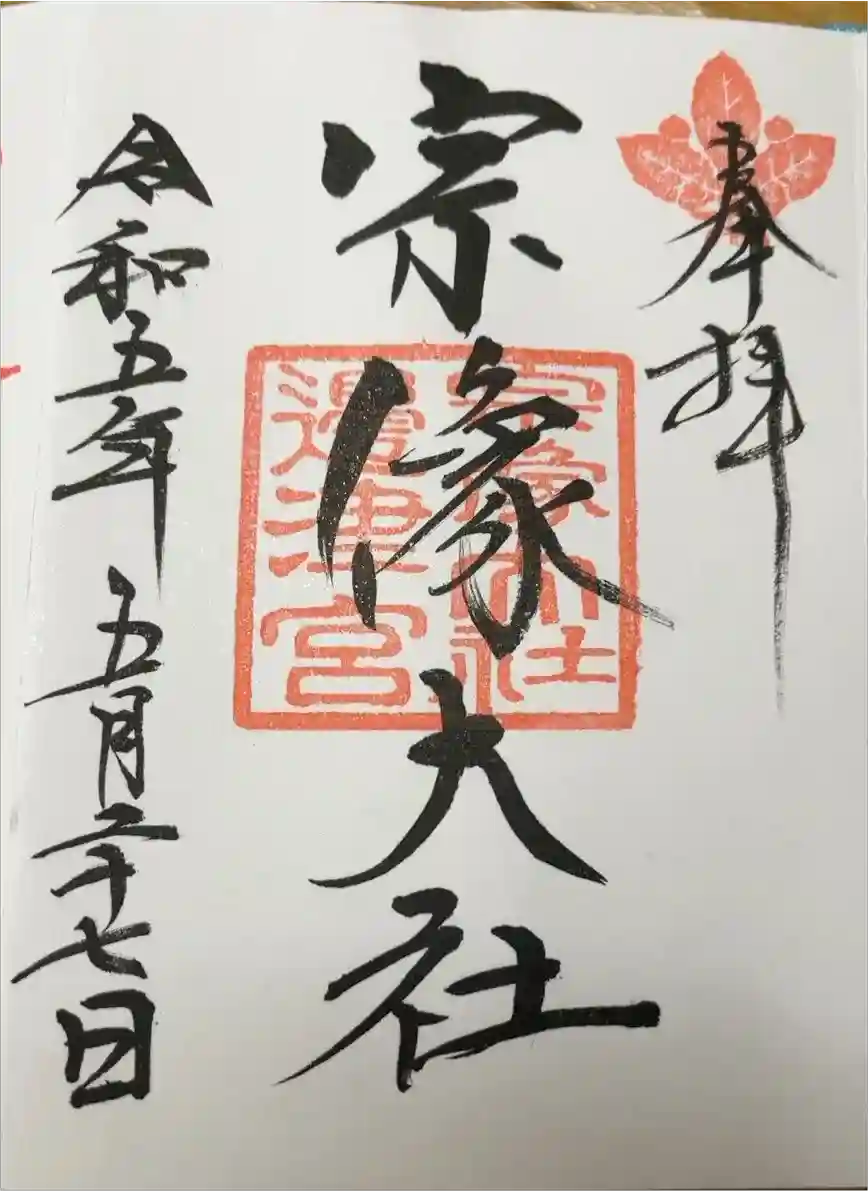 奉拝
宗像大社
宗像大社
邊津宮
令和五年五月二十七日